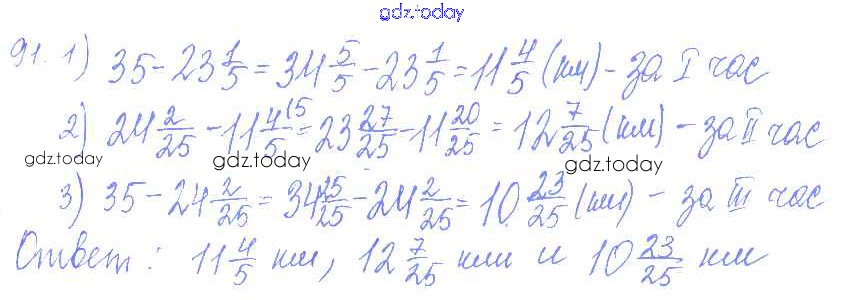 gdz.today
91. 1) 35 - 23 1/5 = 34 5/5 - 23 1/5 = 11 4/5 (км) - за I час
2) 24 2/25 - 11 4/5 (5 = 23 27/25 - 11 20/25 = 12 7/25 (км) - за II час
gdz.today gdz.today gdz.today
3) 35 - 24 2/25 = 34 25/25 - 24 2/25 = 10 23/25 (км) - за III час
Ответ: 11 4/5 км, 12 7/25 км и 10 23/25 км